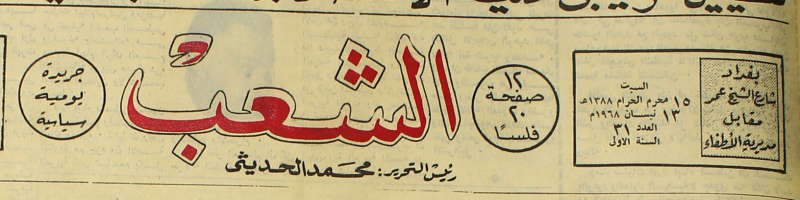 بغداد
شارع الشيخ عمر
مقابل
مديرية الأطفاء
السبت
١٥ محرم الحرام ١٣٨٨هـ
١٣ نيسان ١٩٦٨م
العدد ٣١
السنة الاولى
١٢
صفحة
٢٠
فلسًا
الشعب
رئيس التحرير: محمد الحديثي
جريدة
يومية
سياسية